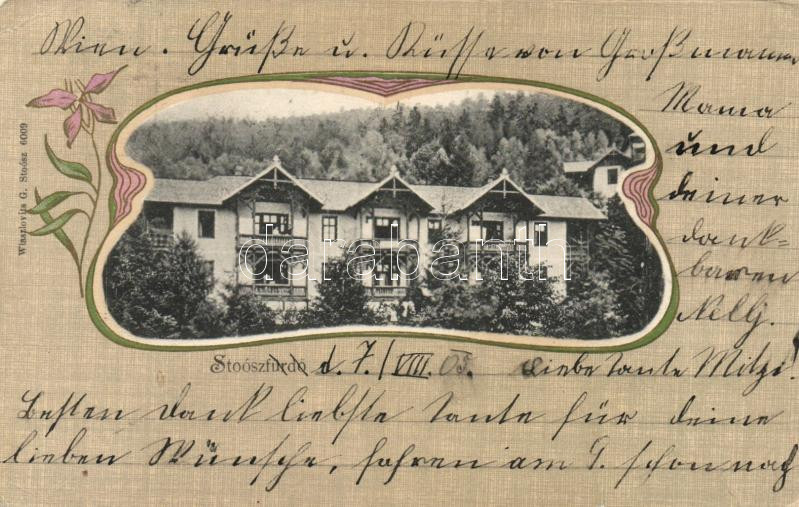 Wien. Grüße u. Küsse von Großmama
Mama
und
deiner
dank=
baren
Nelly.
Wlaszlovits G. Stoósz 6009
darabanth
Stoószfürdő d. 7./VIII. 05. Liebe Tante Mitzi!
Besten Dank liebste Tante für deine
lieben Wünsche, fahren am 9. schon nach